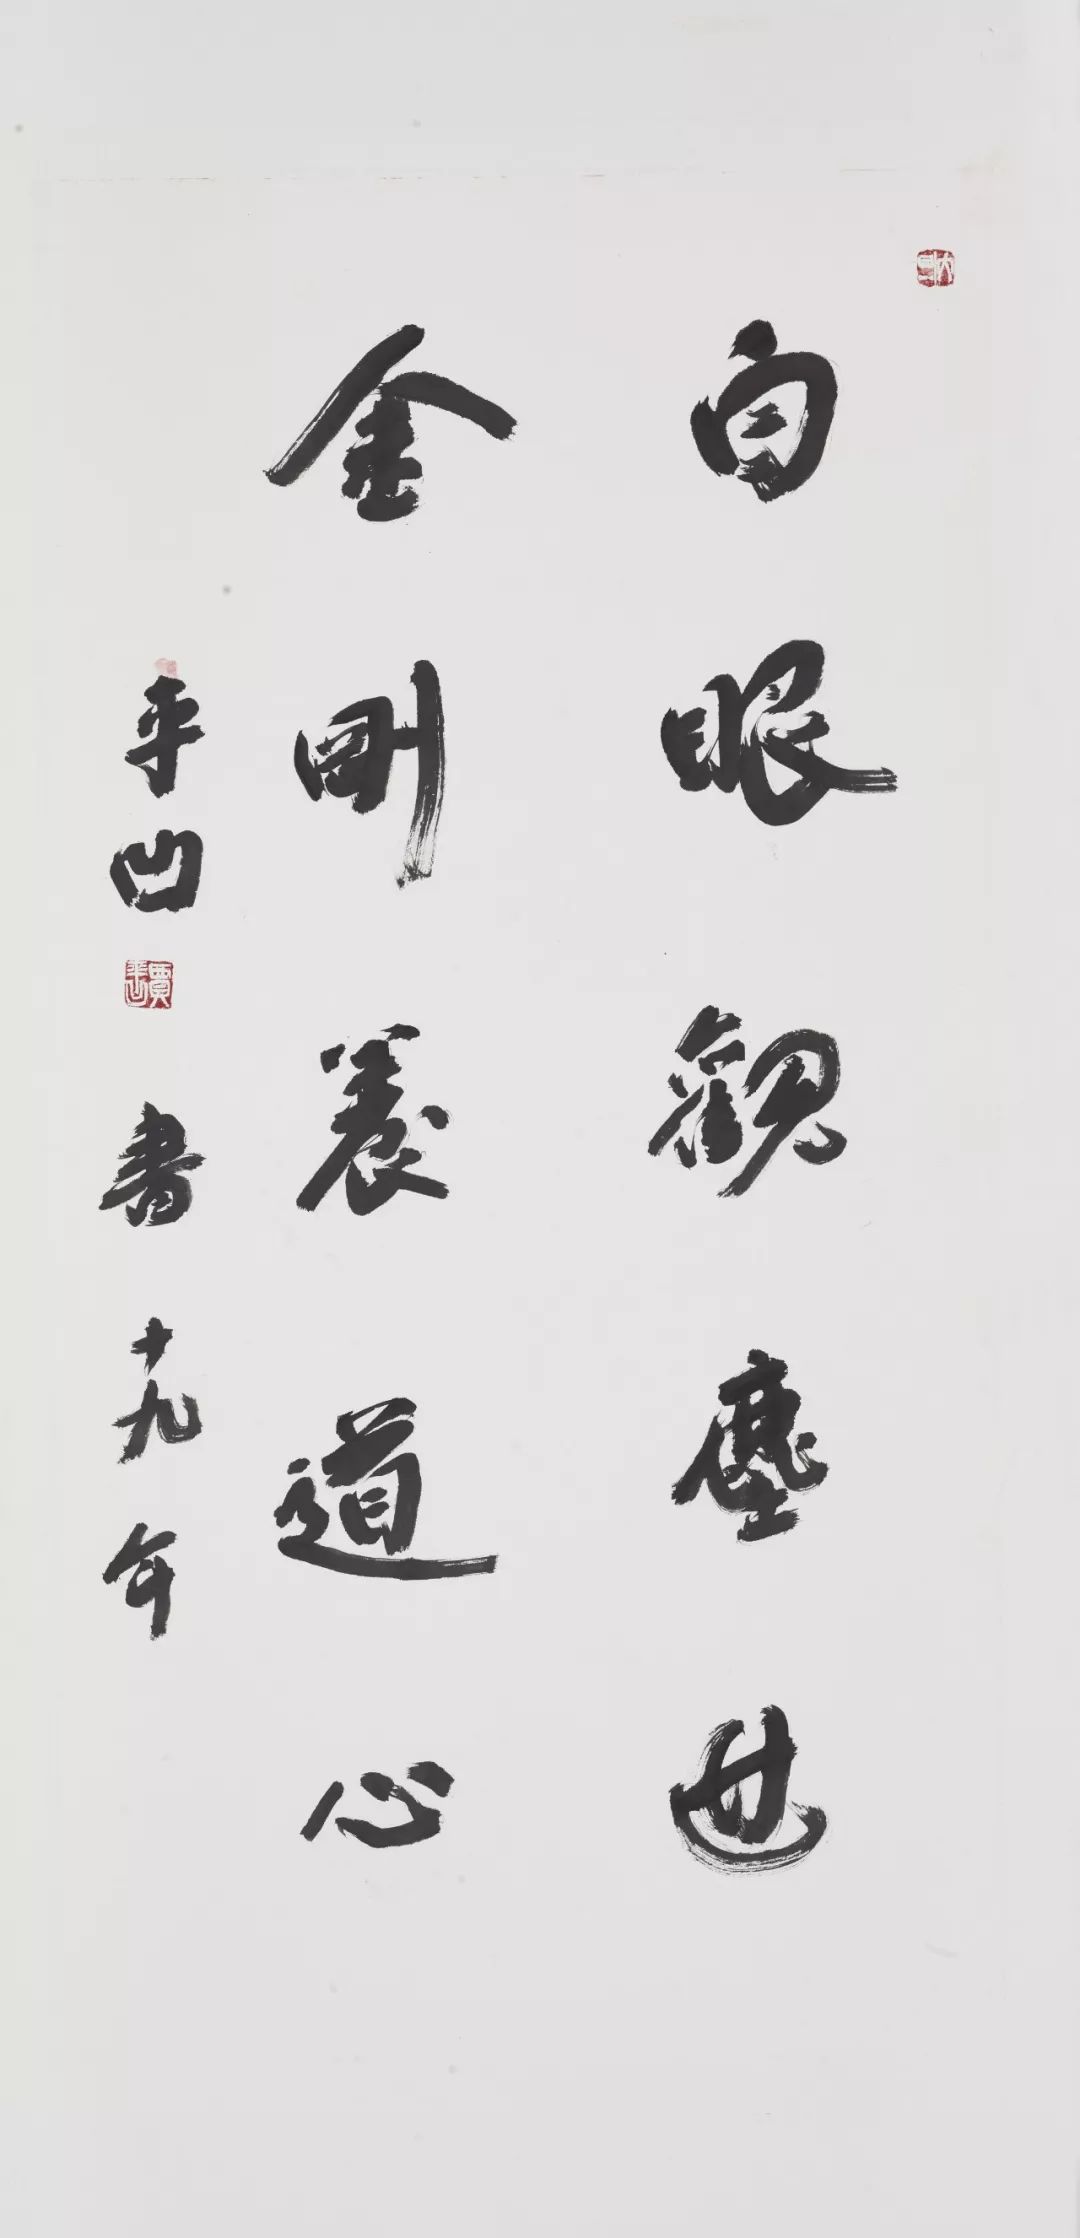 白眼觀塵世
金剛養道心
平凹
書十九年